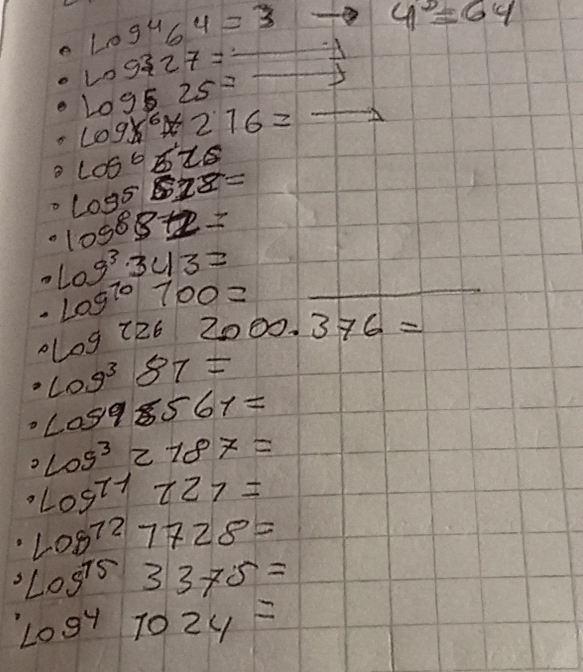 • Log⁴64 = 3 → 4³=64
• Log3 27 = →
• Log5 25 = →
• Log6 216 = →
• Log⁶
• Log⁵ =
• log⁸ 512 =
• Log³ 343 =
• Log¹⁰ 100 =
• Log 126 2000.376 =
• Log³ 81 =
• Log9 6561 =
• Log³ 2187 =
• Log¹¹ 121 =
• Log¹² 1728 =
• Log¹⁵ 3375 =
• Log⁴ 1024 =